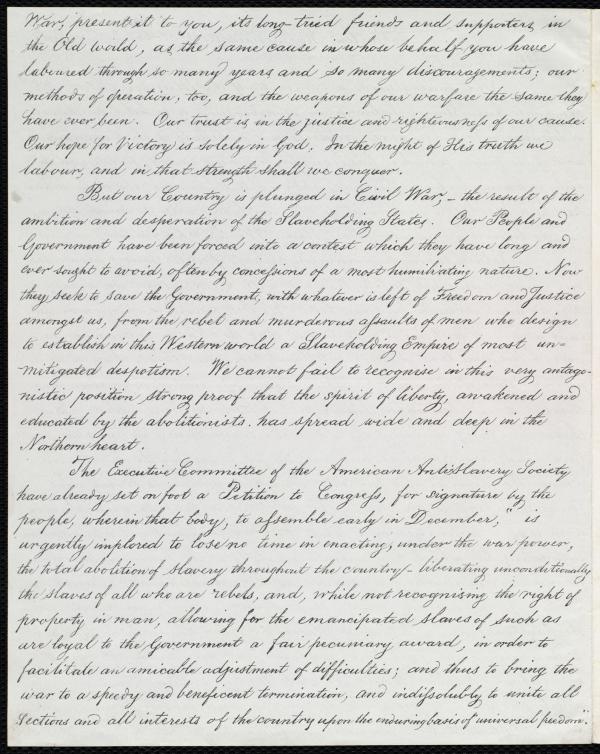 War, present it to you, its long-tried friends and supporters in
the Old world, as the same cause in whose behalf you have
laboured through so many years and so many discouragements; our
methods of operation, too, and the weapons of our warfare the same they
have ever been. Our trust is in the justice and righteousness of our cause.
Our hope for Victory is solely in God. In the might of His truth we
labour, and in that strength shall we conquer.
But our Country is plunged in Civil War, – the result of the
ambition and desperation of the Slaveholding States. Our People and
Government have been forced into a contest which they have long and
ever sought to avoid, often by concessions of a most humiliating nature. Now
they seek to save the Government, with whatever is left of Freedom and Justice
amongst us, from the rebel and murderous assaults of men who design
to establish in this Western world a Slaveholding Empire of most un-
mitigated despotism. We cannot fail to recognise in this very antago-
nistic position strong proof that the spirit of liberty, awakened and
educated by the abolitionists, has spread wide and deep in the
Northern heart.
The Executive Committee of the American Anti-Slavery Society
have already set on foot a Petition to Congress, for signature by the
people, wherein that body, to assemble early in December, "is
urgently implored to lose no time in enacting, under the war power,
the total abolition of slavery throughout the country – liberating unconditionally
the slaves of all who are rebels, and, while not recognising the right of
property in man, allowing for the emancipated slaves of such as
are loyal to the Government a fair pecuniary award, in order to
facilitate an amicable adjustment of difficulties; and thus to bring the
war to a speedy and beneficent termination, and indissolubly to unite all
sections and all interests of the country upon the enduring basis of universal freedom".